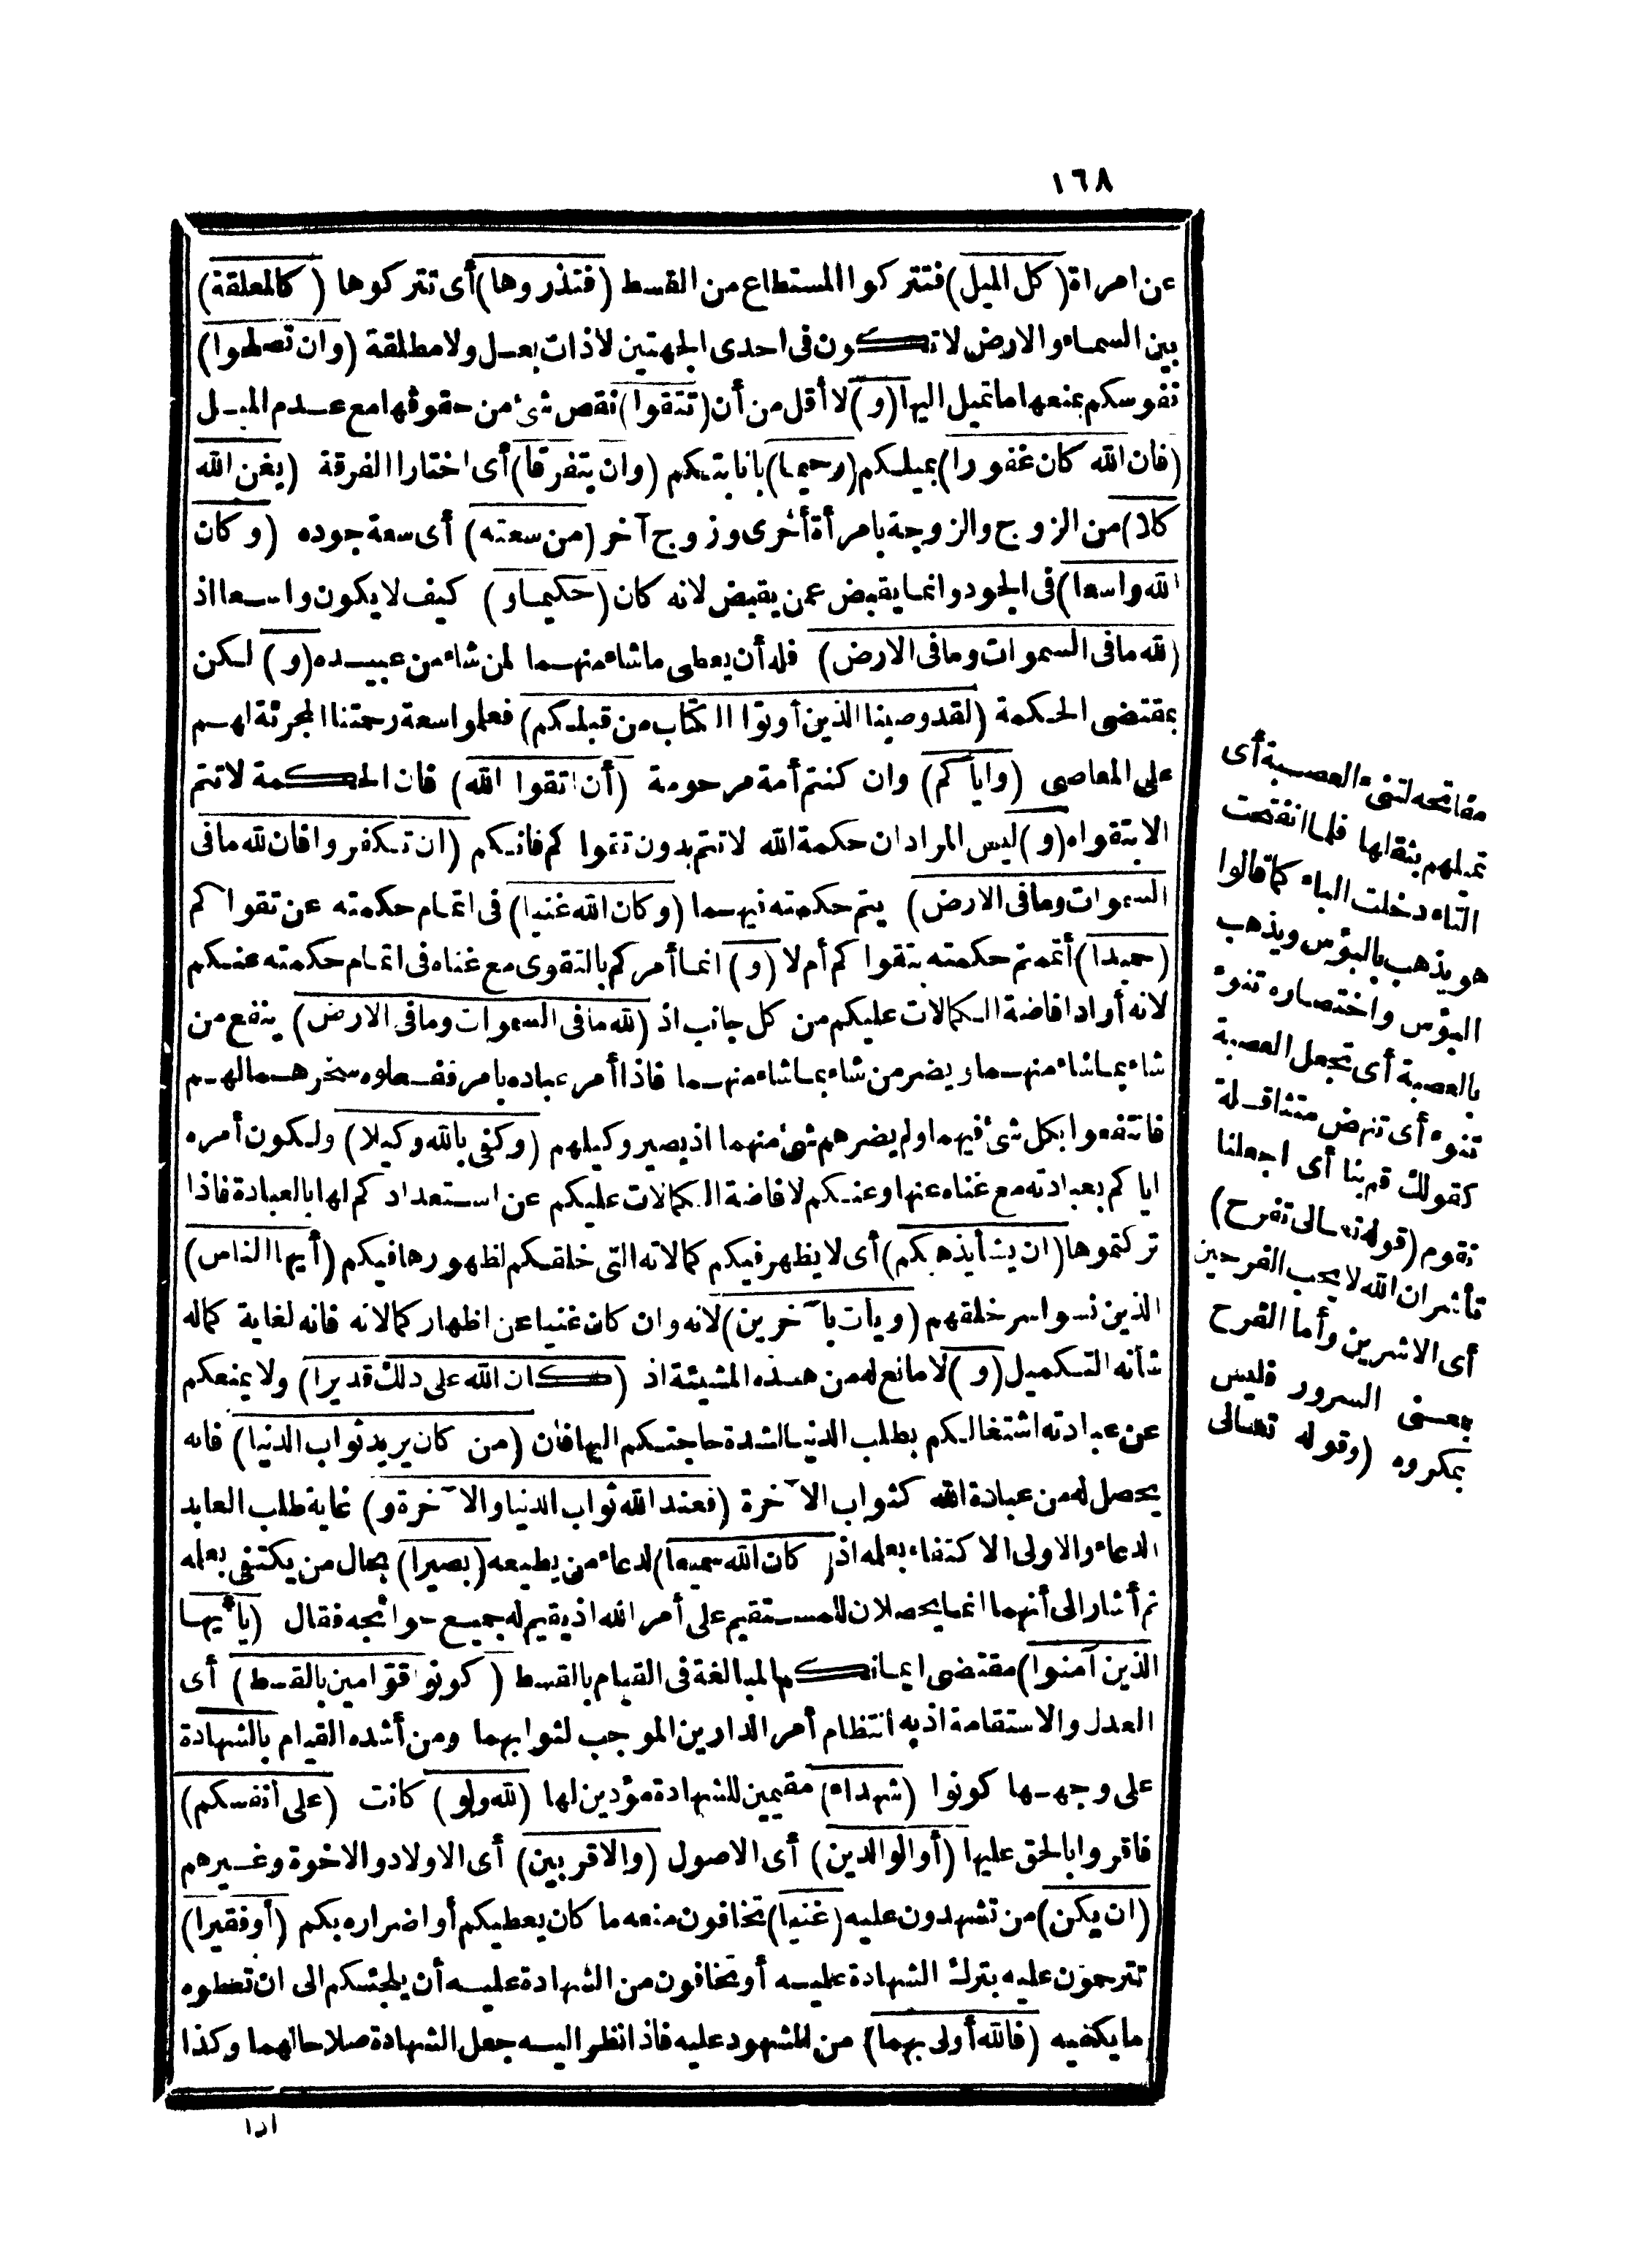 ١٦٨
عن امرأة (كل الميل) فتتركوا المستطاع من القسط (فتذروها) أى تتركوها (كالمعلقة)
بين السماء والارض لاتكون فى احدى الجهتين لاذات بعل ولا مطلقة (وان تصلحوا)
نفوسكم بمنعها ما تميل اليها (و) لا أقل من أن (تتقوا) نقص شئ من حقوقها مع عدم الميل
(فان الله كان غفورا) بميلكم (رحيما) بانابتكم (وان يتفرقا) أى اختارا الفرقة (يغن الله
كلا) من الزوج والزوجة بامرأة أخرى وزوج آخر (من سعته) أى سعة جوده (وكان
الله واسعا) فى الجود وانما يقبض عمن يقبض لانه كان (حكيما و) كيف لا يكون واسعا اذ
(لله ما فى السموات وما فى الارض) فله أن يعطى ما شاء منهما لمن شاء من عبيده (و) لكن
بمقتضى الحكمة (لقد وصينا الذين أوتوا الكتاب من قبلكم) فعلموا سعة رحمتنا المجرئة لهم
على المعاصى (واياكم) وان كنتم أمة مرحومة (أن اتقوا الله) فان الحكمة لا تتم
الا بتقواه (و) ليس المراد ان حكمة الله لا تتم بدون تقواكم فانكم (ان تكفروا فان لله ما فى
السموات وما فى الارض) يتم حكمته فيهما (وكان الله غنيا) فى اتمام حكمته عن تقواكم
(حميدا) أتمم حكمته بتقواكم أم لا (و) انما أمركم بالتقوى مع غناه فى اتمام حكمته عنكم
لانه أراد افاضة الكمالات عليكم من كل جانب اذ (لله ما فى السموات وما فى الارض) ينفع من
شاء بما شاء منهما ويضر من شاء بما شاء منهما فاذا أمر عباده بامر ففعلوه سخرهما لهم
فانتفعوا بكل شئ فيهما ولم يضرهم شئ منهما اذ يصير وكيلهم (وكفى بالله وكيلا) ولكون أمره
اياكم بعبادته مع غناه عنها وعنكم لافاضة الكمالات عليكم عن استعدادكم لها بالعبادة فاذا
تركتموها (ان يشأ يذهبكم) أى لا يظهر فيكم كمالاته التى خلقكم لظهورها فيكم (أيها الناس)
الذين نسوا سر خلقهم (ويأت بآخرين) لانه وان كان غنيا عن اظهار كمالاته فانه لغاية كماله
شأنه التكميل (و) لا مانع له من هذه المشيئة اذ (كان الله على ذلك قديرا) ولا يمنعكم
عن عبادته اشتغالكم بطلب الدنيا لشدة حاجتكم اليها فان (من كان يريد ثواب الدنيا) فانه
يحصل له من عبادة الله كثواب الآخرة (فعند الله ثواب الدنيا والآخرة و) غاية طلب العابد
الدعاء والاولى الاكتفاء بعلمه اذ (كان الله سميعا) لدعاء من يطيعه (بصيرا) بحال من يكتفى بعلمه
ثم أشار الى أنهما انما يحصلان للمستقيم على أمر الله اذ يقيم له جميع حوائجه فقال (يا أيها
الذين آمنوا) مقتضى ايمانكم المبالغة فى القيام بالقسط (كونوا قوّامين بالقسط) أى
العدل والاستقامة اذ به انتظام أمر الدارين الموجب لثوابهما ومن أشده القيام بالشهادة
على وجهها كونوا (شهداء) مقيمين للشهادة مؤدين لها (لله ولو) كانت (على أنفسكم)
فاقروا بالحق عليها (أو الوالدين) أى الاصول (والاقربين) أى الاولاد والاخوة وغيرهم
(ان يكن) من تشهدون عليه (غنيا) تخافون منعه ما كان يعطيكم أو اضراره بكم (أو فقيرا)
تترحمون عليه بترك الشهادة عليه أو تخافون من الشهادة عليه أن يلجئكم الى ان تعطوه
ما يكفيه (فالله أولى بهما) من المشهود عليه فاذا نظر اليه جعل الشهادة صلاحا لهما وكذا
مفاتحه لتنىء العصبة أى
تميلهم بثقلها فلما انفتحت
التاء دخلت الباء كما قالوا
هو يذهب بالبؤس ويذهب
البؤس واختصاره تنوء
بالعصبة أى تجعل العصبة
تنوء أى تنهض متثاقلة
كقولك قم بنا أى اجعلنا
نقوم (قوله تعالى تفرح)
تأشر ان الله لا يحب الفرحين
أى الاشرين وأما الفرح
بمعنى السرور فليس
بمكروه (وقوله تعالى
اذا